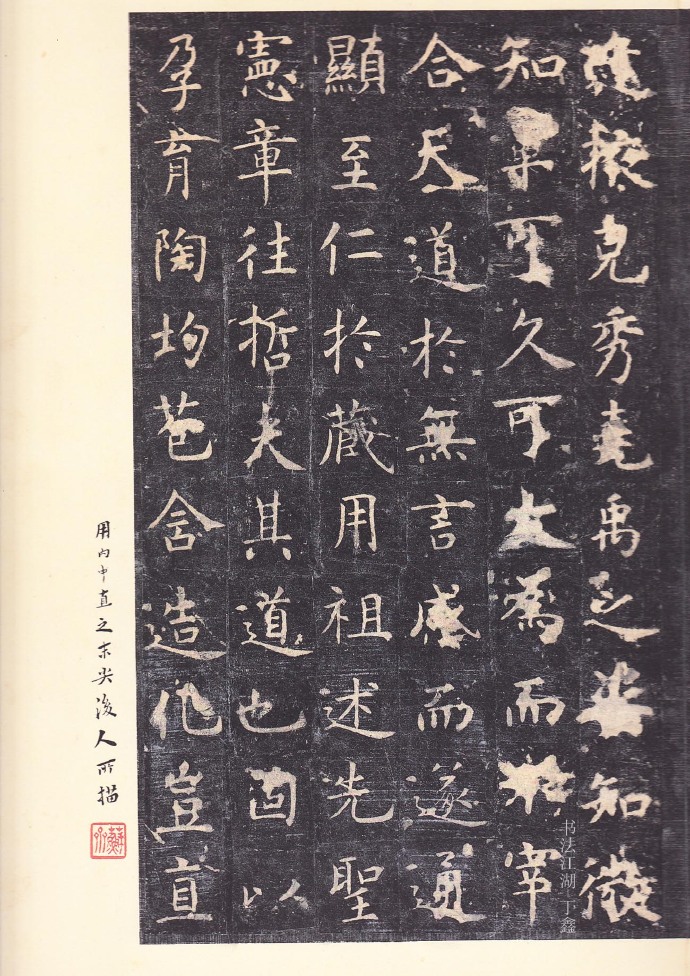 揆克秀堯禹之姿知微
知章可久可大為而不宰
合天道於無言感而遂通
顯至仁於藏用祖述先聖
憲章往哲夫其道也固以
孕育陶均苞含造化豈直
用内中直之末尖後人所描
书法江湖 丁鑫